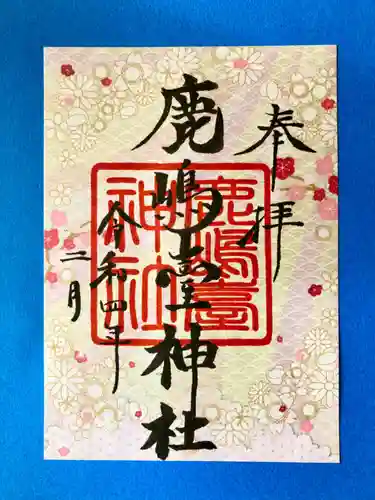 奉拝
鹿嶋臺神社
令和四年
二月
鹿嶋臺
神社